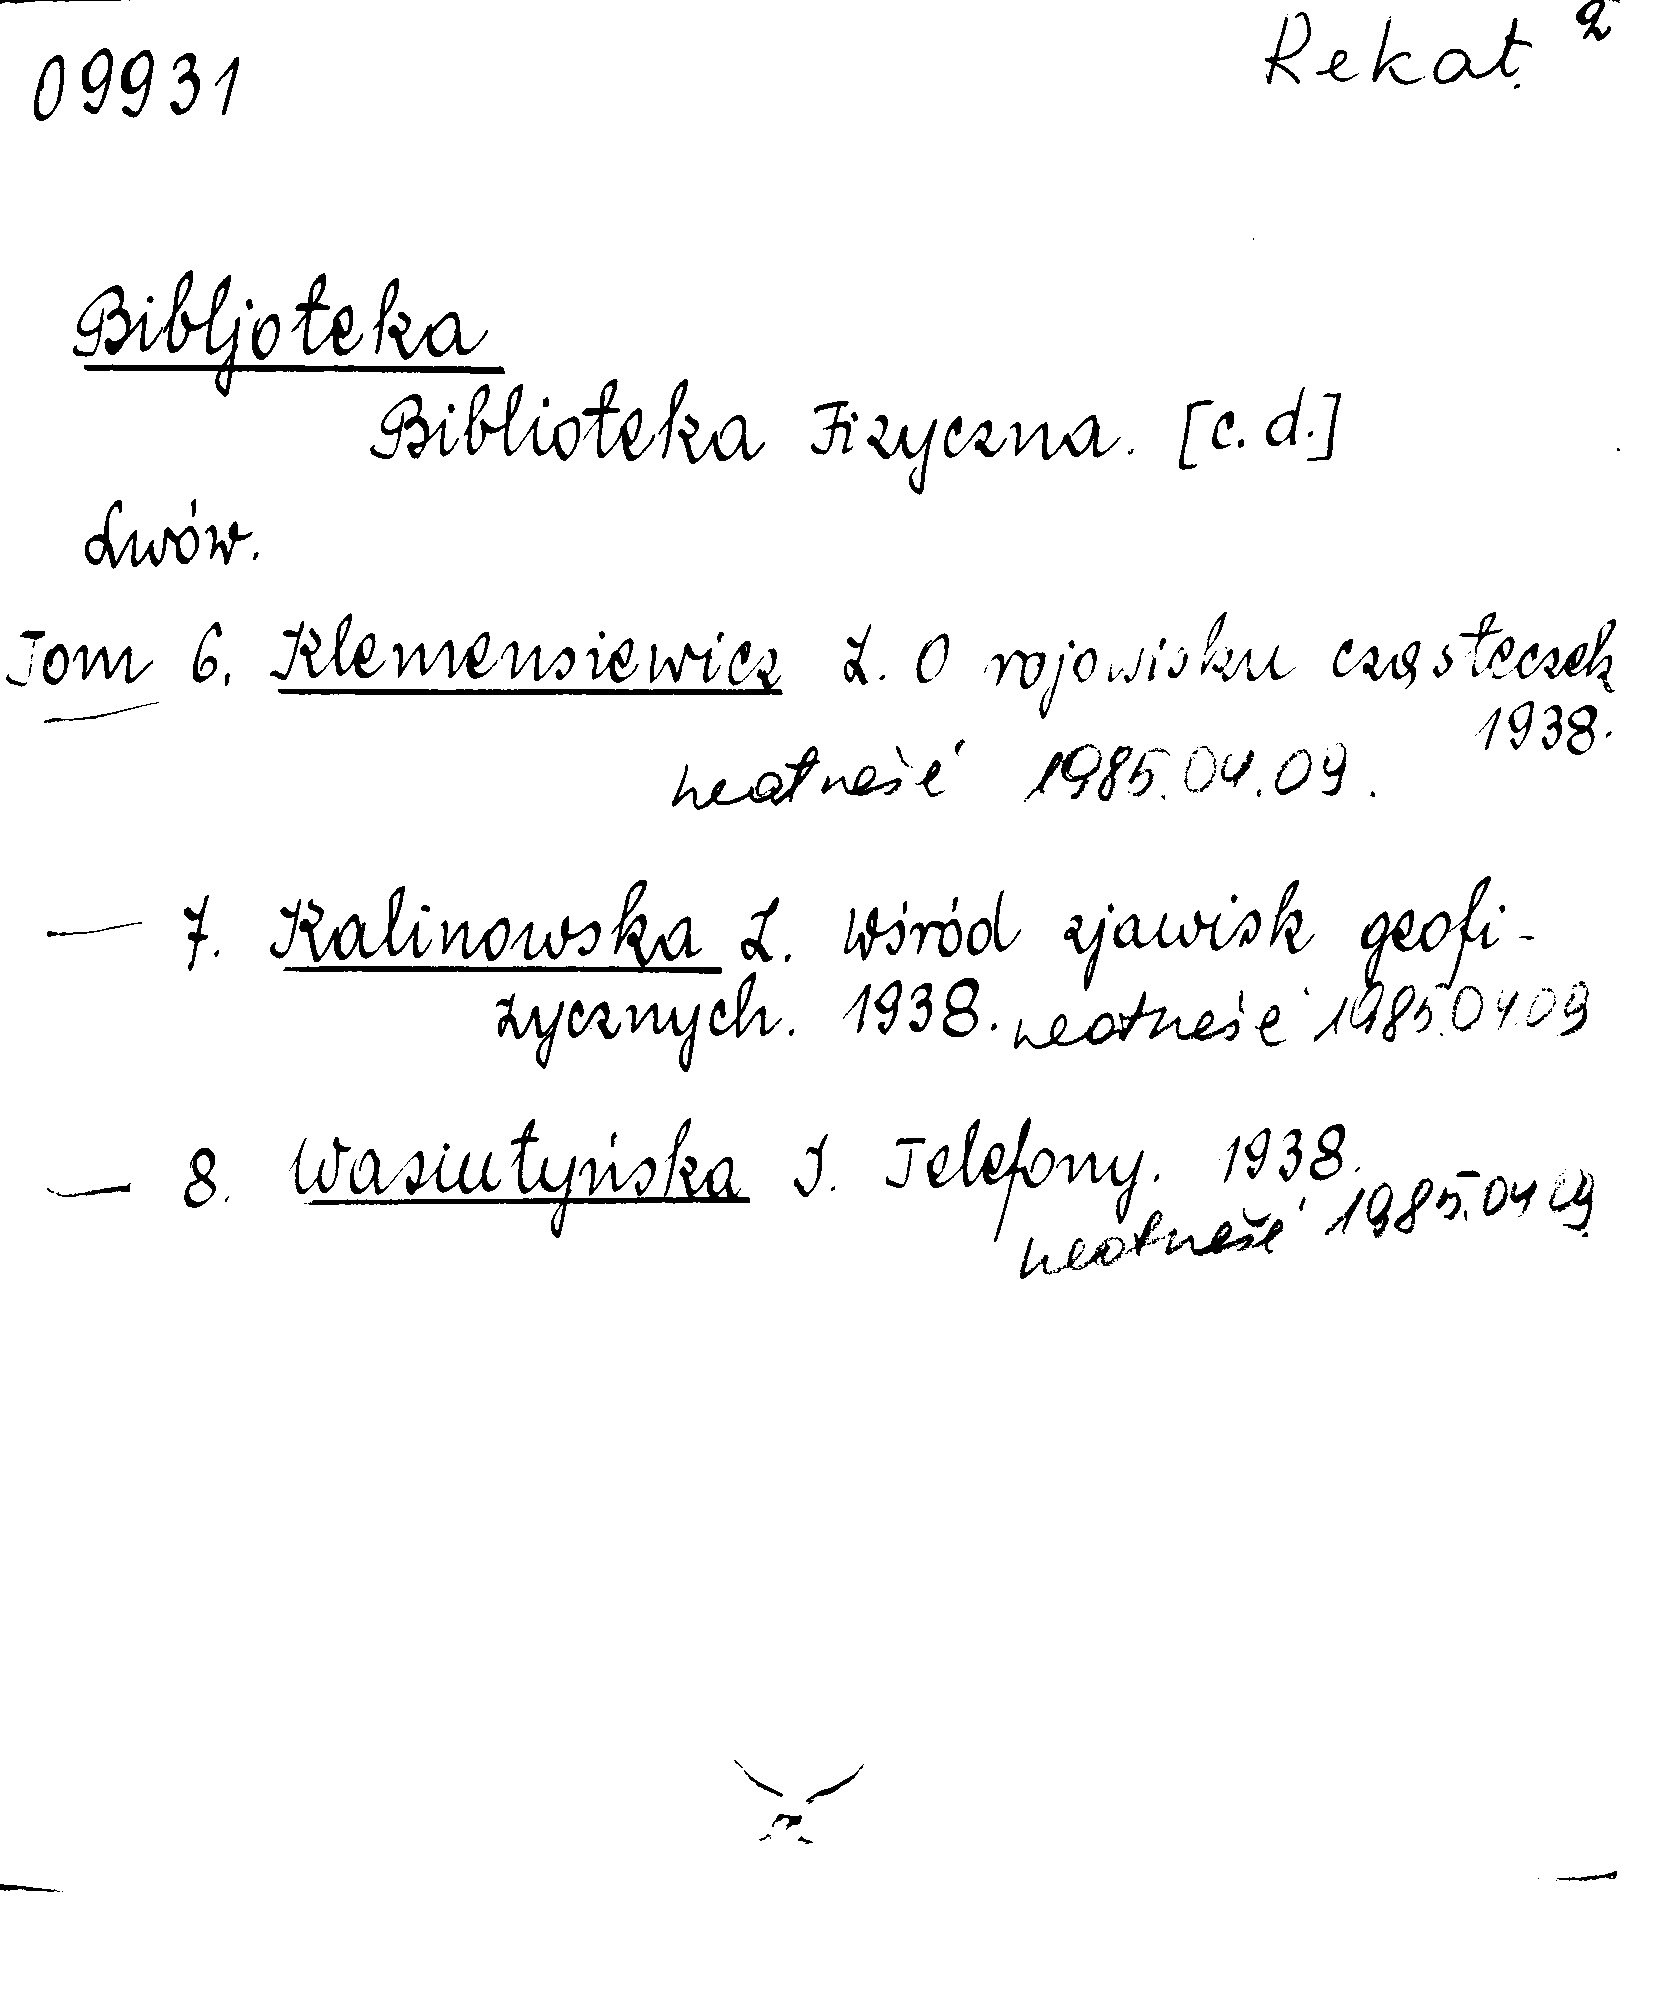 09931
Rekat. 2
Bibljoteka
Biblioteka Fizyczna. [c.d.]
Lwów.
Tom 6. Klemensiewicz Z. O rojowisku cząsteczek
1938.
1985.04.09.
— 7. Kalinowska Z. Wśród zjawisk geofi-
zycznych. 1938. 1985.04.09
— 8. Wasiutyńska J. Telefony. 1938.
1985.04.09